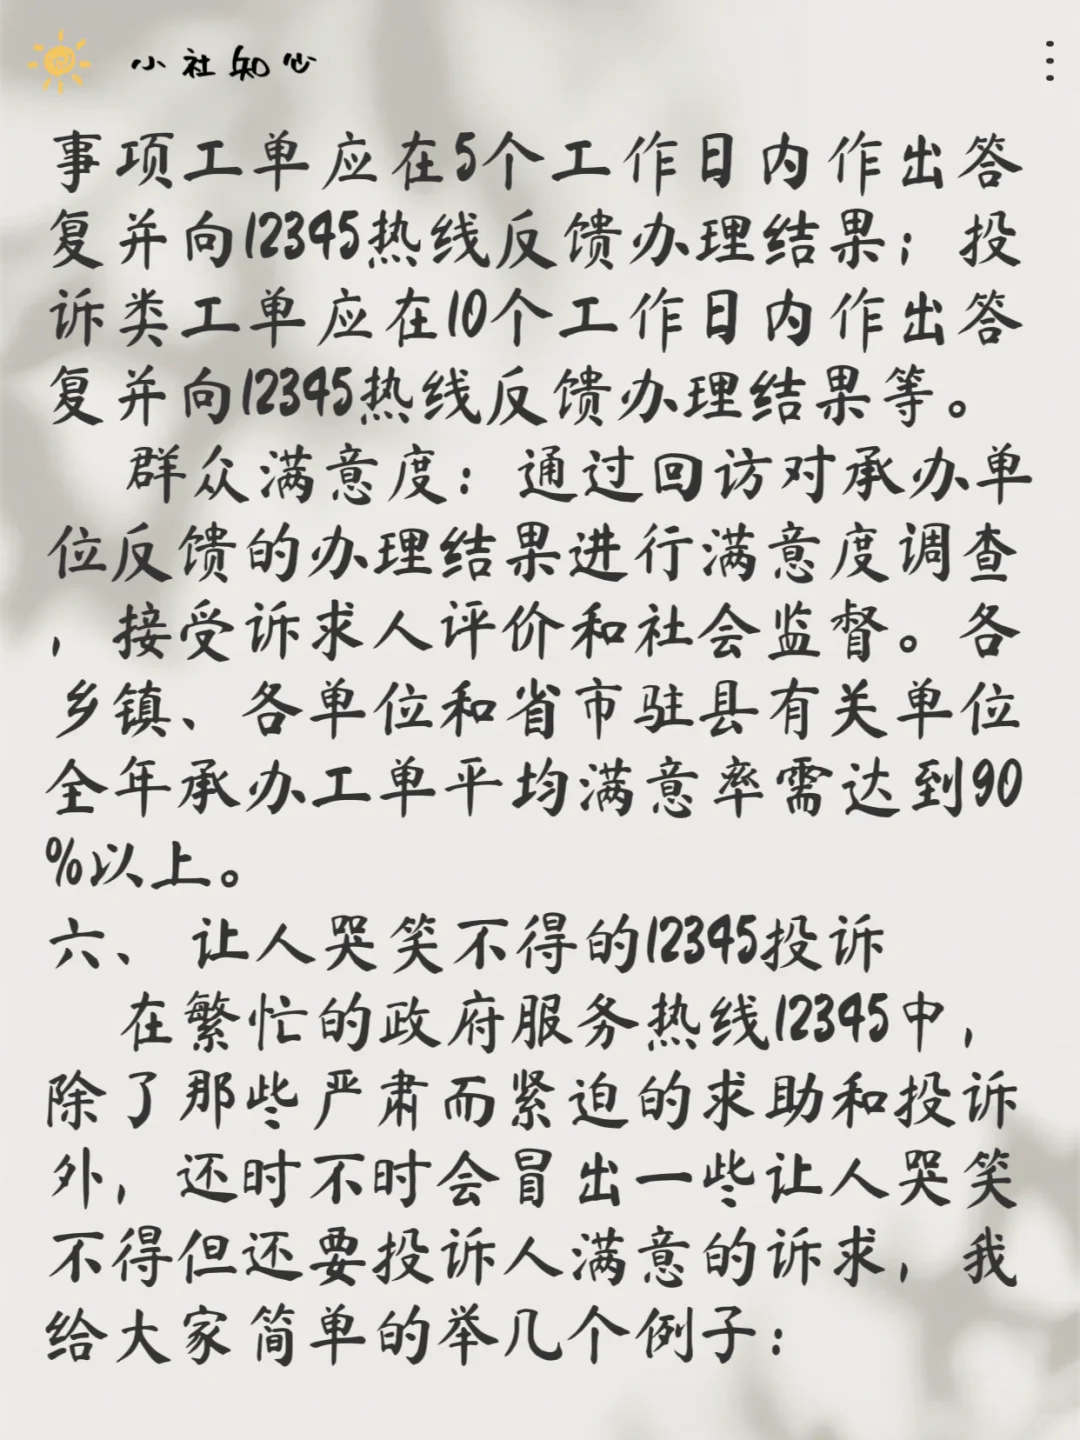 小社知心
事项工单应在5个工作日内作出答
复并向12345热线反馈办理结果；投
诉类工单应在10个工作日内作出答
复并向12345热线反馈办理结果等。
群众满意度：通过回访对承办单
位反馈的办理结果进行满意度调查
，接受诉求人评价和社会监督。各
乡镇、各单位和省市驻县有关单位
全年承办工单平均满意率需达到90
%以上。
六、让人哭笑不得的12345投诉
在繁忙的政府服务热线12345中，
除了那些严肃而紧迫的求助和投诉
外，还时不时会冒出一些让人哭笑
不得但还要投诉人满意的诉求，我
给大家简单的举几个例子：